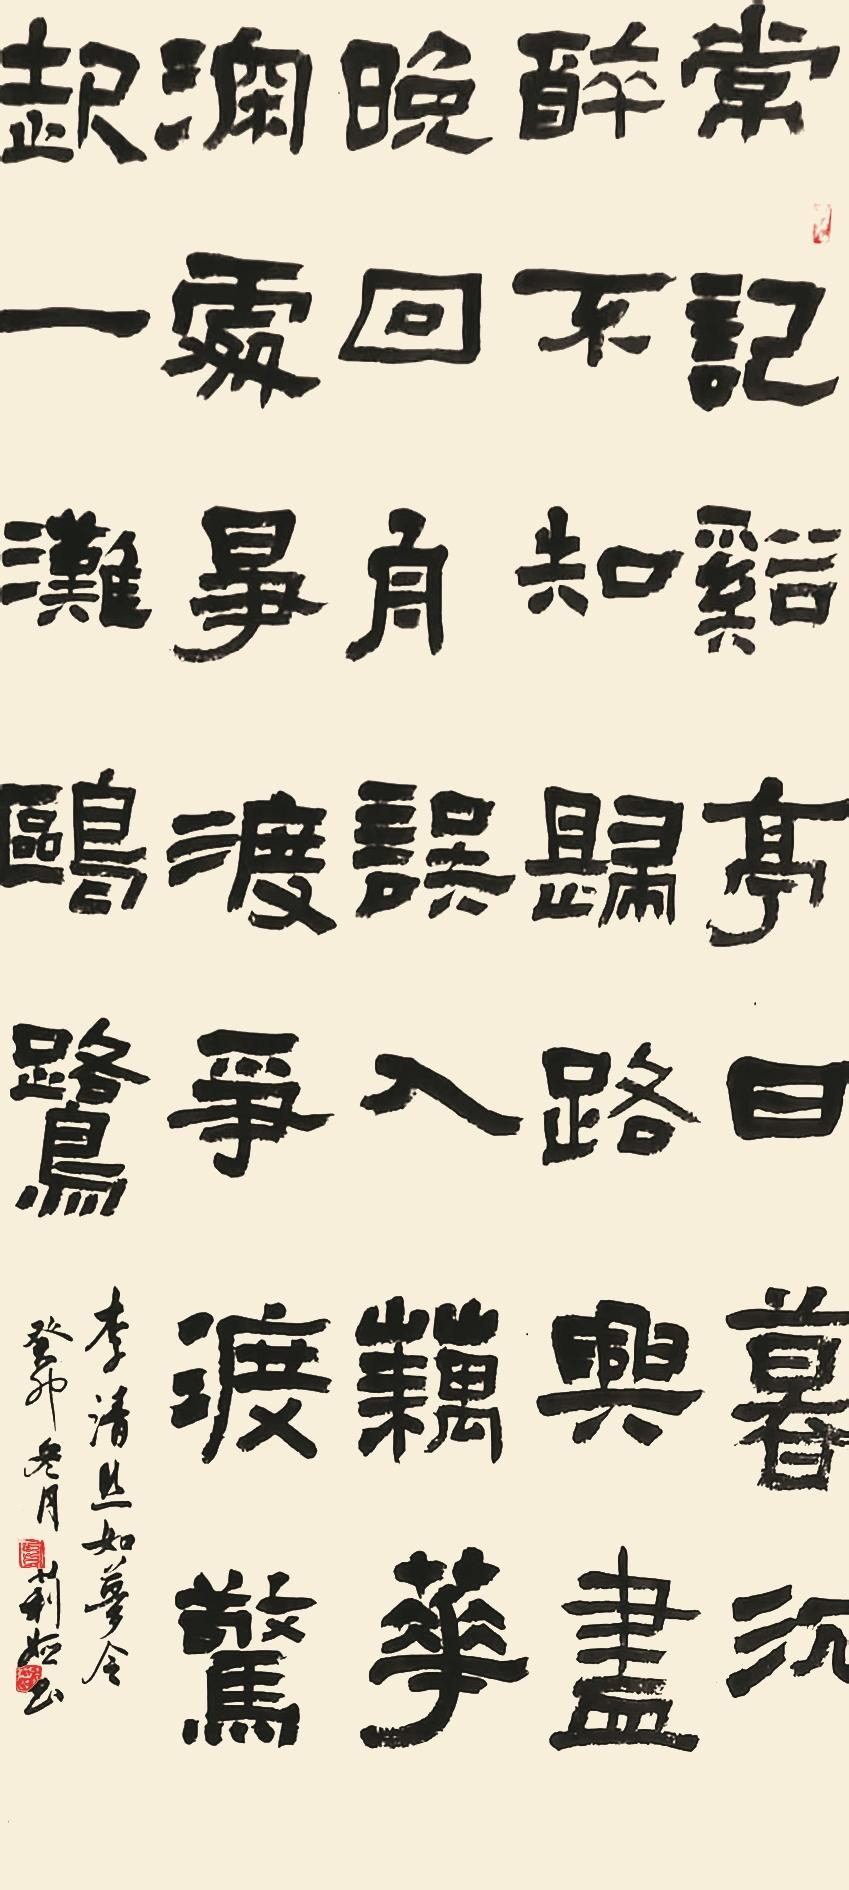 常記谿亭日暮沉
醉不知歸路興盡
晚回舟誤入藕華
深處爭渡爭渡驚
起一灘鷗鷺
李清照如夢令
癸卯月莉書